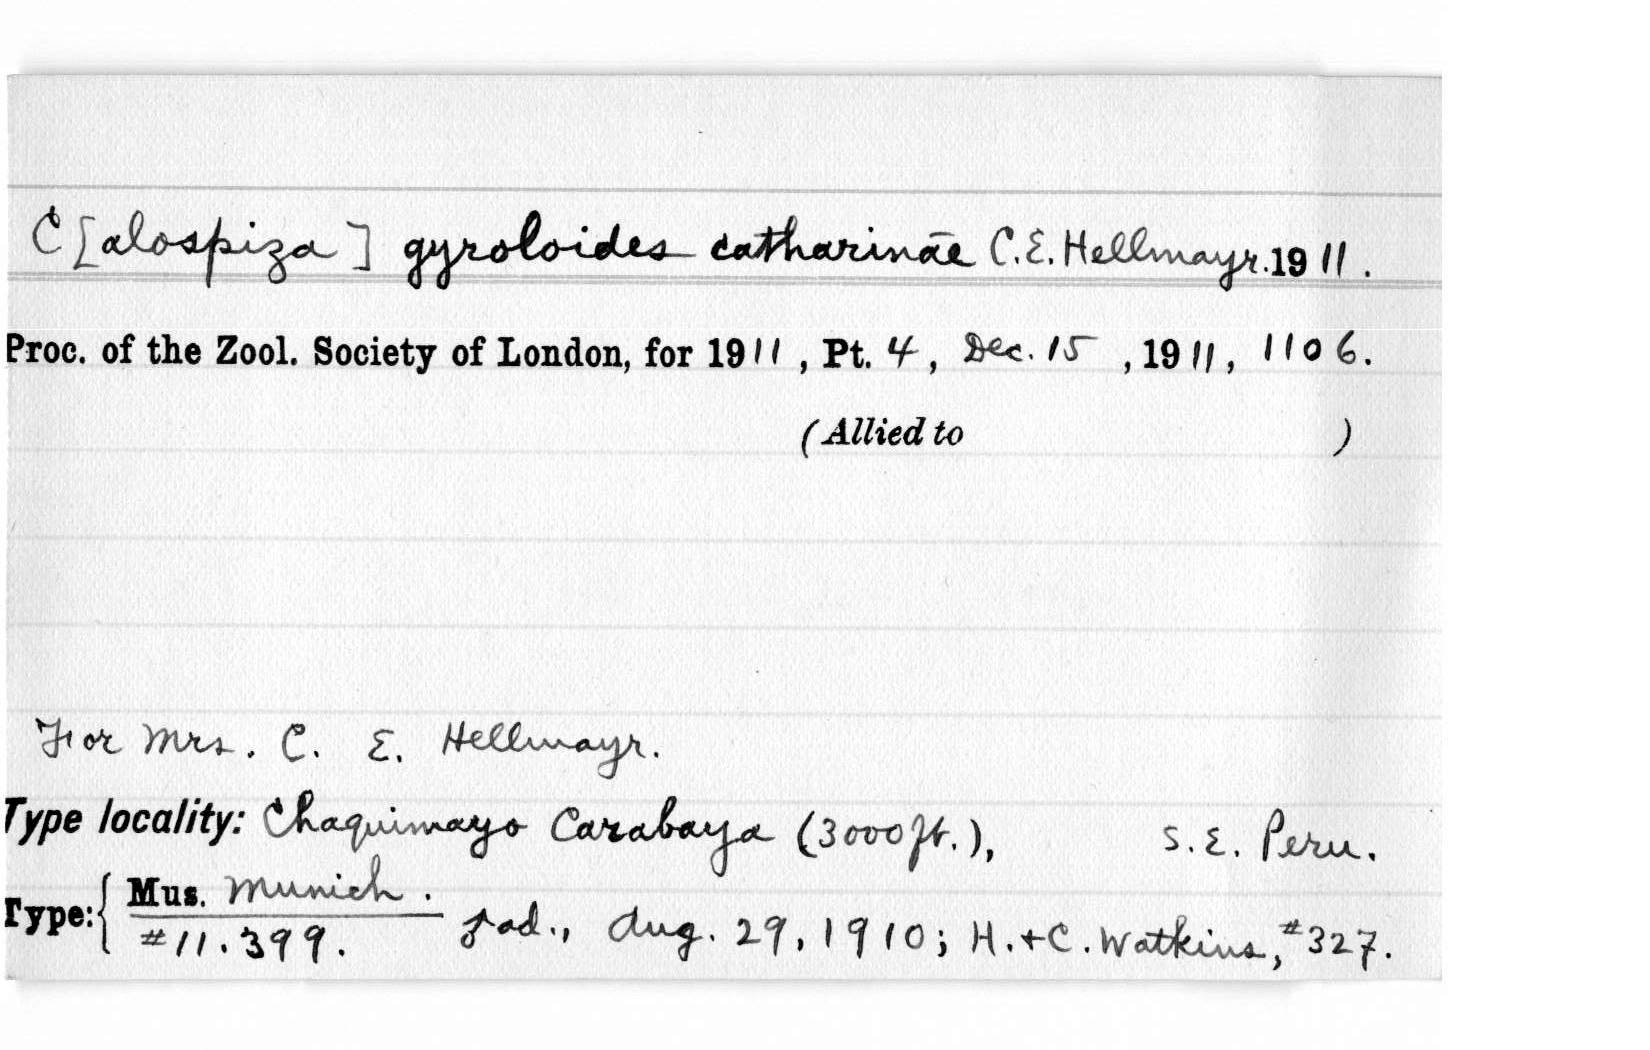 C[alospiza] gyroloides catharinae C.E. Hellmayr. 1911.
Proc. of the Zool. Society of London, for 1911, Pt. 4, Dec. 15, 1911, 1106.
(Allied to )
For Mrs. C. E. Hellmayr.
Type locality: Chaquimayo Carabaya (3000 ft.), S.E. Peru.
Type: { Mus. Munich. ad., Aug. 29, 1910; H.+C. Watkins, #327.
#11.399.